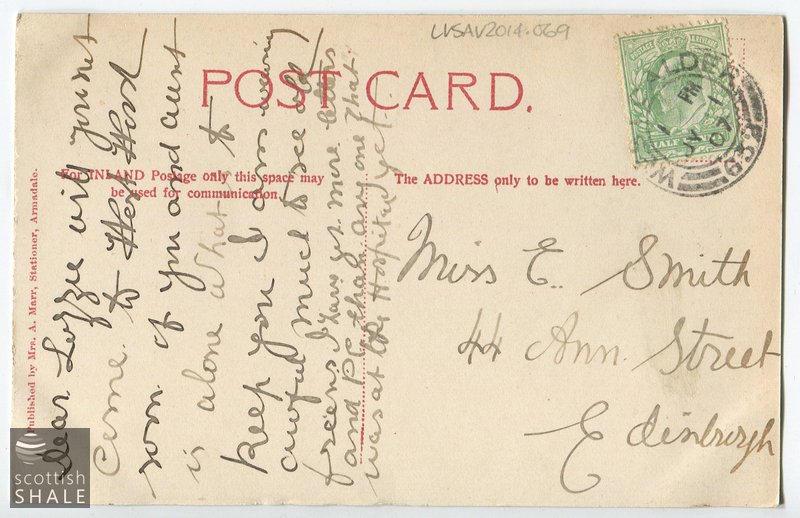 LVSAV2014.069
POST CARD.
For INLAND Postage only this space may
be used for communication.
The ADDRESS only to be written here.
Published by Mrs. A. Marr, Stationer, Armadale.
Dear Lizzie will you not
come to West
soon if you and aunt
is alone what to
keep you I am wearing
awful much to see old
freens I have got more letters
and PC than any one that
was at the Hospital yet
Miss E. Smith
44 Ann Street
Edinburgh
POSTAGE
ALDER
PM
JY 1
07
scottish
SHALE